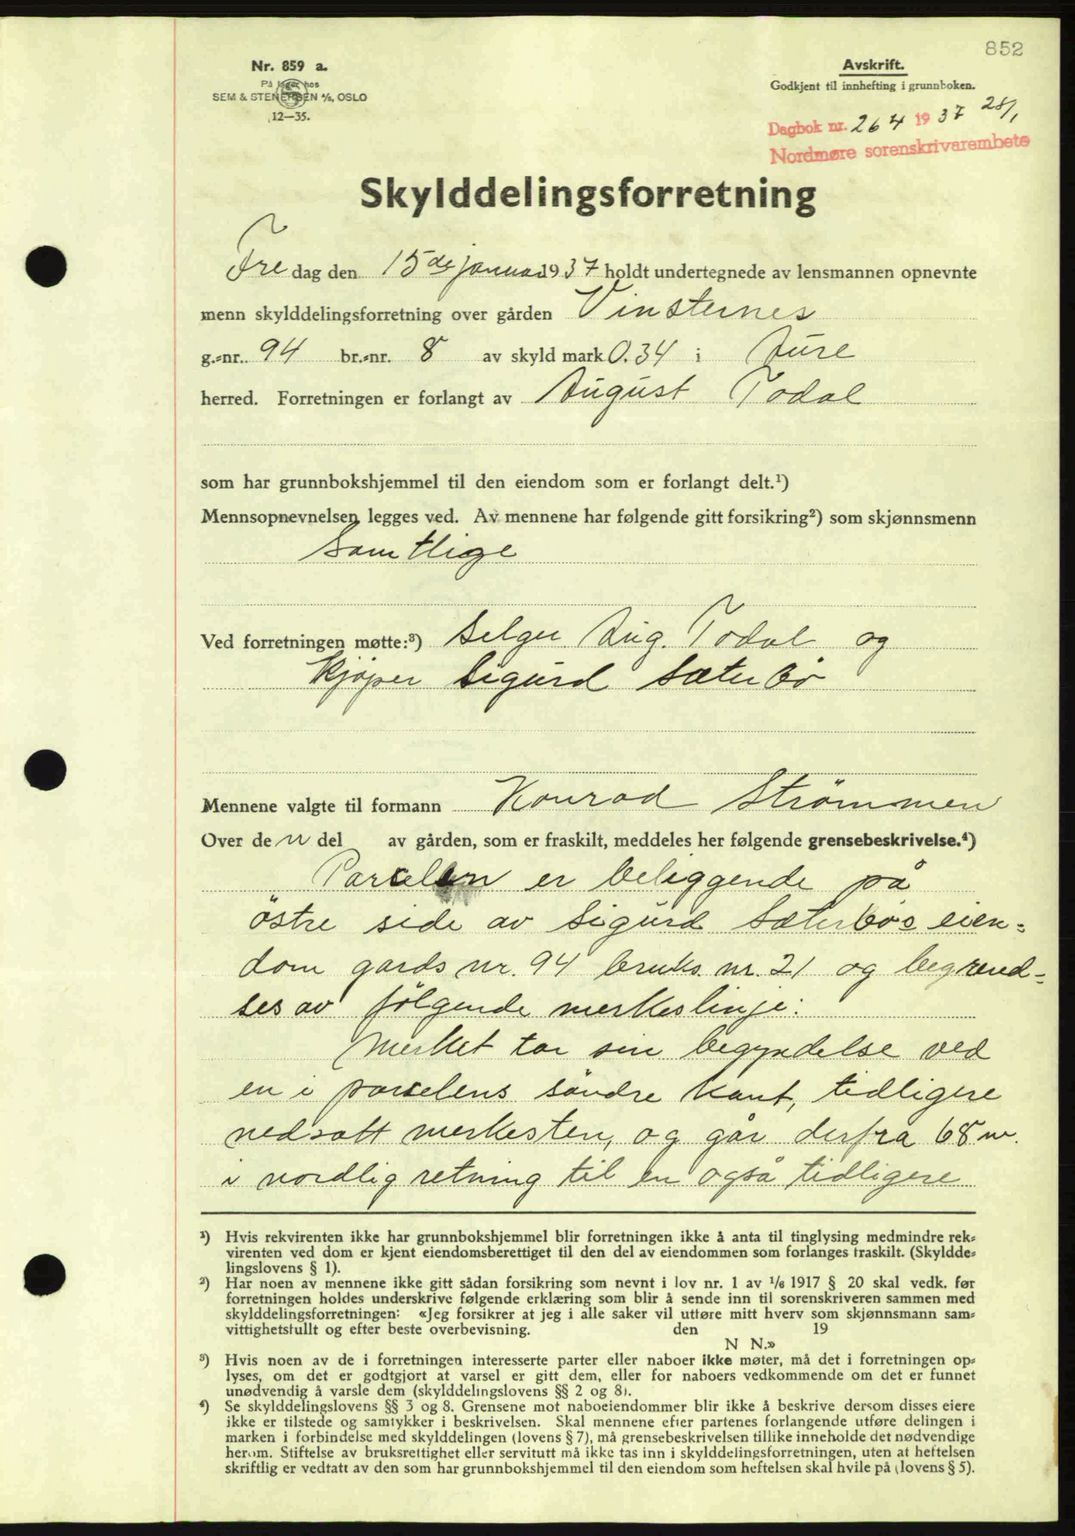 852
Nr. 859 a.
På lager hos
SEM & STENERSEN A/S, OSLO
12—35.
Avskrift.
Godkjent til innhefting i grunnboken.
Dagbok nr. 264 1937 28/1
Nordmøre sorenskrivarembete
Skylddelingsforretning
Fredag den 15de januar 1937 holdt undertegnede av lensmannen opnevnte
menn skylddelingsforretning over gården Vinsternes
g.-nr. 94 br.-nr. 8 av skyld mark 0.34 i Aure
herred. Forretningen er forlangt av August Todal
som har grunnbokshjemmel til den eiendom som er forlangt delt.¹)
Mennsopnevnelsen legges ved. Av mennene har følgende gitt forsikring²) som skjønnsmenn
Samtlige
Ved forretningen møtte:³) Selger Aug. Todal og
Kjøper Sigurd Sæterbö
Mennene valgte til formann Konrad Strömmen
Over den del av gården, som er fraskilt, meddeles her følgende grensebeskrivelse.⁴)
Parcelen er beliggende på
östre side av Sigurd Sæterbös eien-
dom gards nr. 94 bruks nr. 21 og begrend-
ses av følgende merkeslinje:
Merket tar sin begyndelse ved
en i parcelens söndre kant, tidligere
nedsatt merkesten, og går derfra 68 m.
i nordlig retning til en også tidligere
¹) Hvis rekvirenten ikke har grunnbokshjemmel blir forretningen ikke å anta til tinglysing medmindre rek-
virenten ved dom er kjent eiendomsberettiget til den del av eiendommen som forlanges fraskilt. (Skyldde-
lingslovens § 1).
²) Har noen av mennene ikke gitt sådan forsikring som nevnt i lov nr. 1 av 1/6 1917 § 20 skal vedk. før
forretningen holdes underskrive følgende erklæring som blir å sende inn til sorenskriveren sammen med
skylddelingsforretningen: «Jeg forsikrer at jeg i alle saker vil utføre mitt hverv som skjønnsmann sam-
vittighetsfullt og efter beste overbevisning. den 19
N N.»
³) Hvis noen av de i forretningen interesserte parter eller naboer ikke møter, må det i forretningen op-
lyses, om det er godtgjort at varsel er gitt dem, eller for naboers vedkommende om det er funnet
unødvendig å varsle dem (skylddelingslovens §§ 2 og 8).
⁴) Se skylddelingslovens §§ 3 og 8. Grensene mot naboeiendommer blir ikke å beskrive dersom disses eiere
ikke er tilstede og samtykker i beskrivelsen. Skal mennene efter partenes forlangende utføre delingen i
marken i forbindelse med skylddelingen (lovens § 7), må grensebeskrivelsen tillike inneholde det nødvendige
herom. Stiftelse av bruksrettighet eller servitutt må ikke tas inn i skylddelingsforretningen, uten at heftelsen
skriftlig er vedtatt av den som har grunnbokshjemmel til den eiendom som heftelsen skal hvile på (lovens § 5).